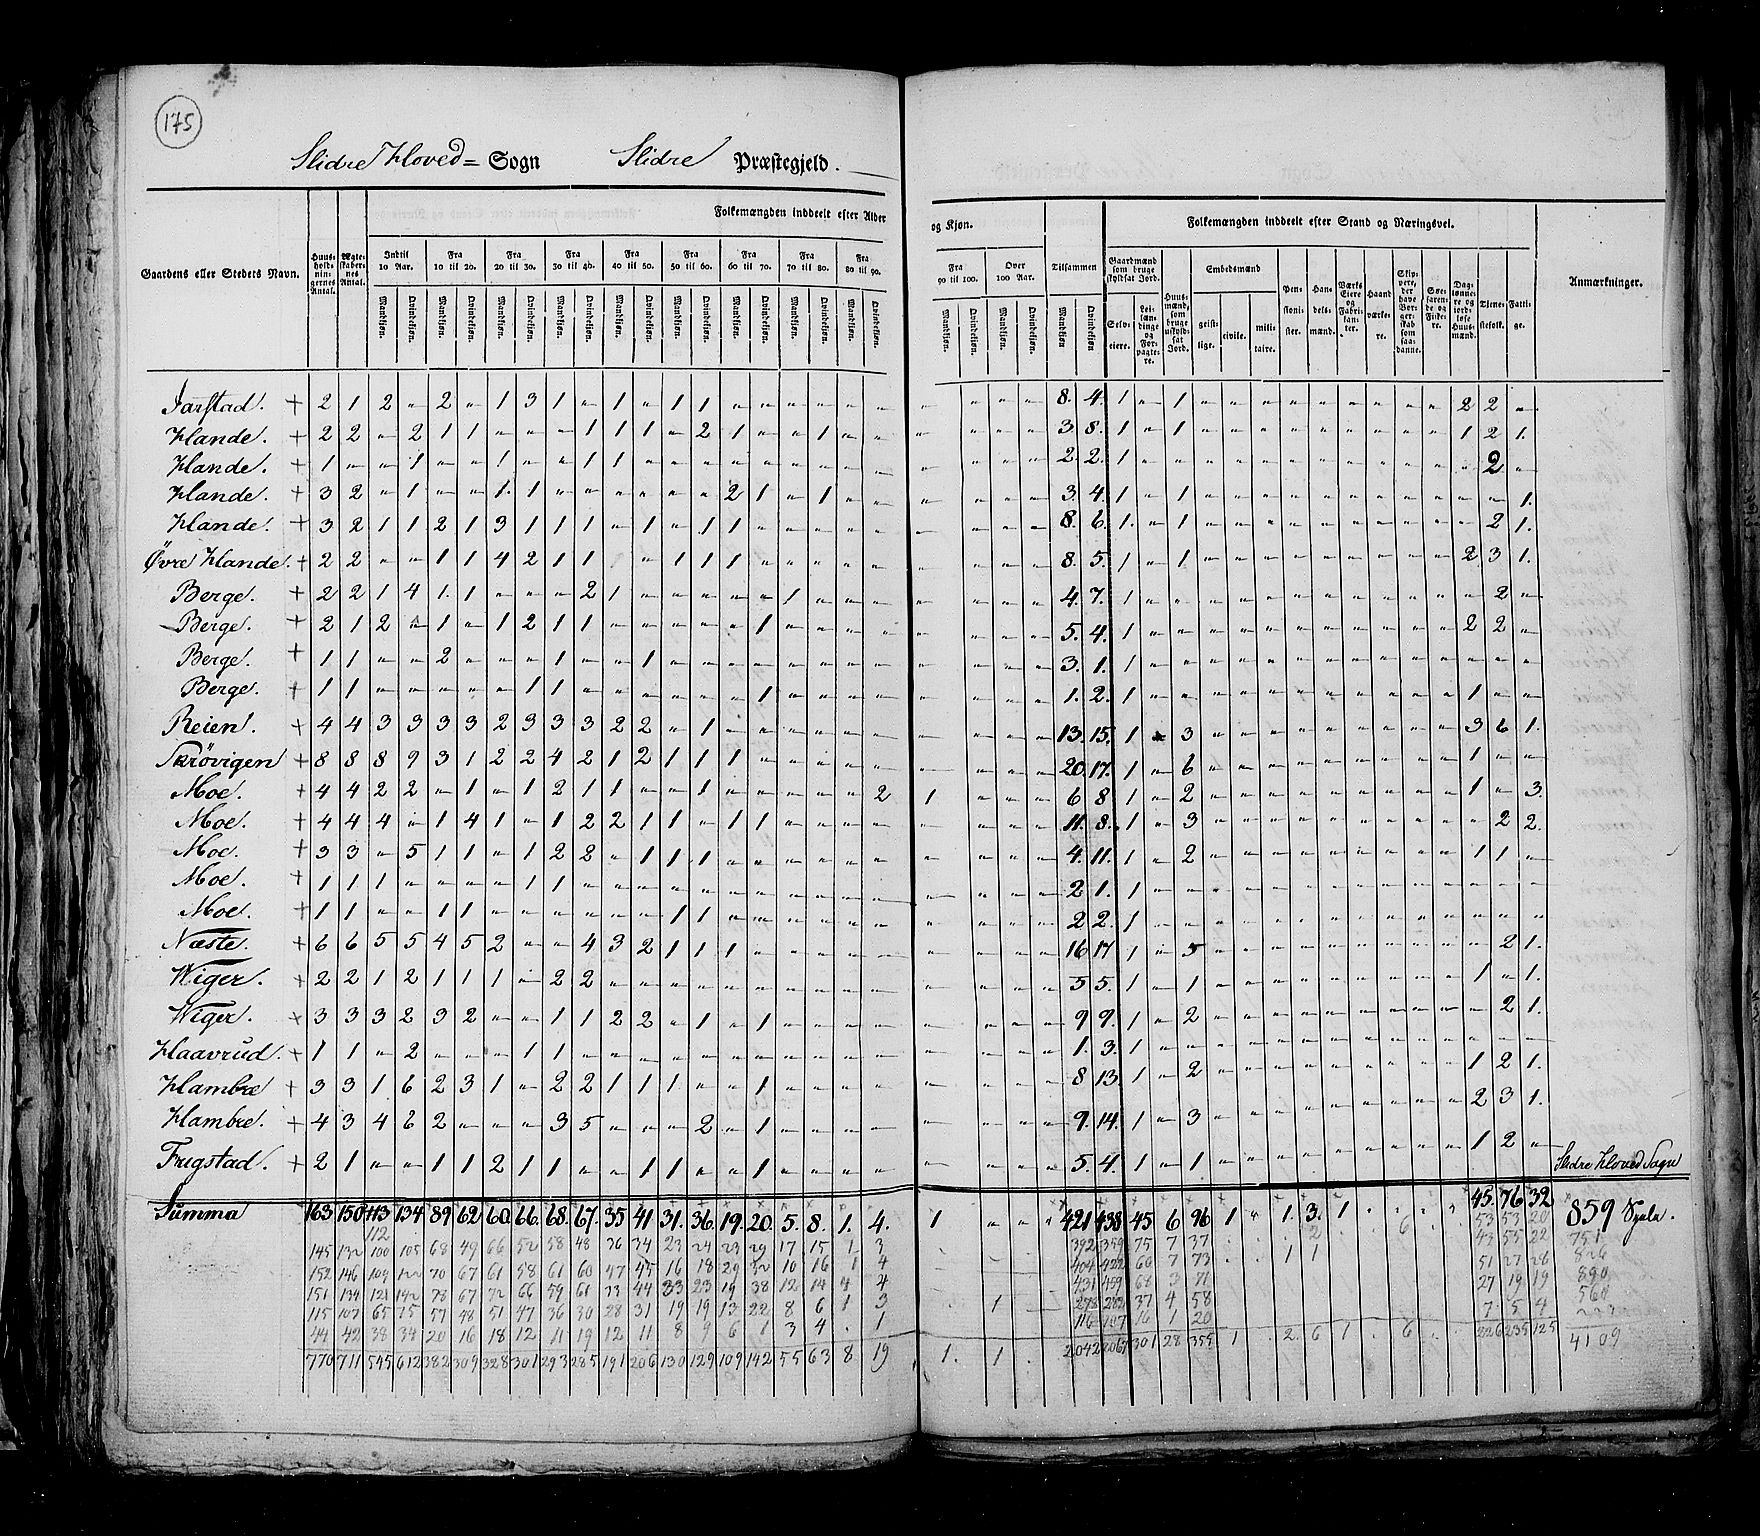 175
Slidre Hoved= Sogn Slidre Præstegjeld.
Folkemængden inddeelt efter Alder og Kjøn.
Folkemængden inddeelt efter Stand og Næringsvei.
Gaardens eller Stedets Navn.
Huusholdningernes Antal.
Ægteskabernes Antal.
Indtil 10 Aar.
Fra 10 til 20.
Fra 20 til 30.
Fra 30 til 40.
Fra 40 til 50.
Fra 50 til 60.
Fra 60 til 70.
Fra 70 til 80.
Fra 80 til 90.
Fra 90 til 100.
Over 100 Aar.
Tilsammen
Mandkjøn. Qvindekjøn.
Gaardmænd som bruge skyldsat Jord.
Selveiere.
Leilændinge og Forpagtere.
Huusmænd, som bruge uskyldsat Jord.
Embedsmænd
geistlige. civile. militaire.
Pensionister.
Handelsmænd.
Værks Eiere og Fabrikanter.
Haandværkere.
Skippere, der have Borgerskab som saadanne.
Søefarende og Fiskere.
Daglønnere og jordløse Huusmænd.
Tjenestefolk.
Fattige.
Anmærkninger.
Jarstad. + 2 1 2 " 2 " 1 3 1 " 1 " 1 1 8. 4. 1 " 1 2 2 "
Hande. + 2 2 " 2 1 1 " " " 1 1 1 " 2 1 " " 1 " " 3 8. 1 " 1 1 2 1.
Hande. + 1 " " 1 " " 1 " " 1 1 2 2. 1 2 "
Hande. + 3 2 " 1 " " 1 1 " " " " " " 2 1 " 1 3. 4. 1 " 1 " 1.
Hande. + 3 2 1 1 2 1 3 1 1 1 " 1 " 1 1 8. 6. 1. " 1 " 2 1.
Øvre Hande. + 2 2 " " 1 1 4 2 1 1 " 1 1 1 8. 5. 1 " 1 2 3 1.
Berge. + 2 2 1 4 1. 1 " " " 2 1 " " " " " 1 4. 7. 1 " 2 "
Berge. + 2 1 2 " 1 " 1 2 1 1 " " " " " 1 5. 4. 1 2 2 "
Berge. + 1 1 " " 2 " " " 1 " " 1 3. 1. 1
Berge. + 1 1 " " " " " 1 1 " " " " " " 1 1. 2. 1 1 " "
Reien. + 4 4 3 3 3 3 2 3 3 3 2 2 " 1 13. 15. 1 " 3 3 6 1.
Skrövigen + 8 8 8 9 3 1 2 2 4 2 1 2 1 1 1 20. 17. 1 " 6 1 " "
Moe. + 4 4 2 2 " 1 " 1 2 1 1 " " 1 " " " " " 2 1 6 8 1 " 2 1 " 3.
Moe. + 4 4 4 " 1 4 1 " 1 2 2 1 1 " 1 1 11. 8. 1 " 3 " 2 2.
Moe. + 3 3 " 5 1 1 " 1 2 2 " 1 1 1 4. 11. 1 " 2 1 1 "
Moe. + 1 1 1 " " " " 1 1 2 1. 1
Moe. + 1 1 " " 1 1 " " " " " " 1 1 2 2. 1
Næste. + 6 6 5 5 4 5 2 " " 4 3 2 1 1 1 16 17 1 " 5 " 2 1.
Wiger. + 2 2 1 2 1 1 1 " 2 2 5 5. 1 " 1 1 " 1.
Wiger. + 3 3 3 2 3 2 " " 1 1 2 2 " 1 " 1 9 9. 1 " 2 " 2 1.
Haavrud. + 1 1 " 2 " " " 1 1 1. 3. 1
Hambre + 3 3 1 6 2 3 1 " 2 2 1 1 1 " " 1 8 13. 1 " 2 1 2 1.
Hambre. + 4 3 4 6 2 " " " 3 5 " " " 2 " 1 9. 14. 1 " 3 2 3 1.
Frigstad. + 2 1 " " 1 1 2 1 1 " " 1 1 " " 1 5. 4. 1 " 1 1 2 "
Slidre Hoved Sogn
Summa 163 150 113 134 89 62 60. 66. 68. 67. 35 41 31. 36. 19. 20. 5. 8. 1. 4. 1 " " " 421 438 45 6 96 1 " 1. 3. 1 45. 76 32 859 Sjæle.
112
145 132 100 105 68 49 66 52 58 48 36 34 23 24 23 29 17 15 1 3 392 359 75 7 37 2 6 53 53 20 751
152 146 109 122 70 67 61 58 61 60 47 45 16 18 29 32 10 16 1 4 404 422 60 7 73 1 1 43 55 22 826
151 134 121 142 78 67 72 66 59 61 33 44 33 23 19 38 12 14 4 4 431 459 68 3 71 51 27 28 890
115 107 65 75 57 48 51 47 36 30 28 31 19 19 13 22 8 6 1 3 1 278 282 37 4 58 27 19 19 560
44 42 38 34 20 16 18 12 11 19 12 11 8 9 6 1 3 4 . 1 116 107 16 1 20 7 5 4 223
770 711 545 612 382 309 328 301 293 285 191 206 130 129 109 142 55 63 8 19 1. 1 2042 2067 301 28 355 1 . 2. 6 1 . 6 226 235 125 4109